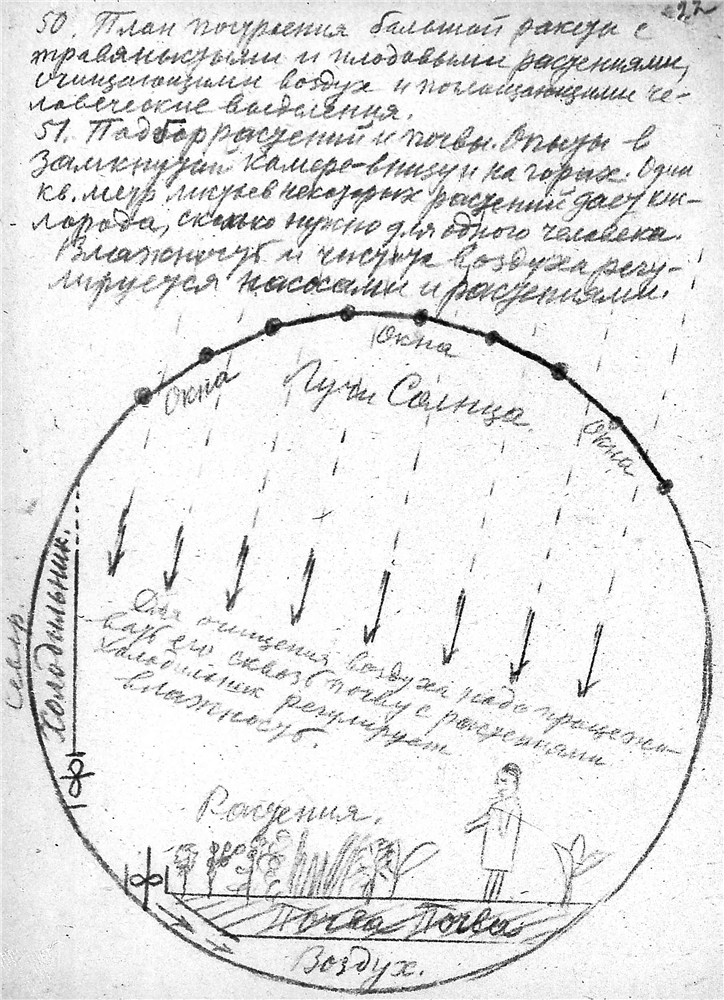 22
50. План построения большой ракеты с
травянистыми и плодовыми растениями,
очищающими воздух и поглощающими че-
ловеческие выделения.
51. Подбор растений и почвы. Опыты в
замкнутой камере-внизу и на горах. Один
кв. метр листьев некоторых растений дает кис-
лорода, сколько нужно для одного человека.
Влажность и чистота воздуха регу-
лируется насосами и растениями.
Окна
Окна
Окна
Лучи Солнца.
Север.
Холодильник.
Для очищения воздуха надо процежи-
вать его сквозь почву с растениями
Холодильник регулирует
влажность.
Растения.
Почва Почва
Воздух.